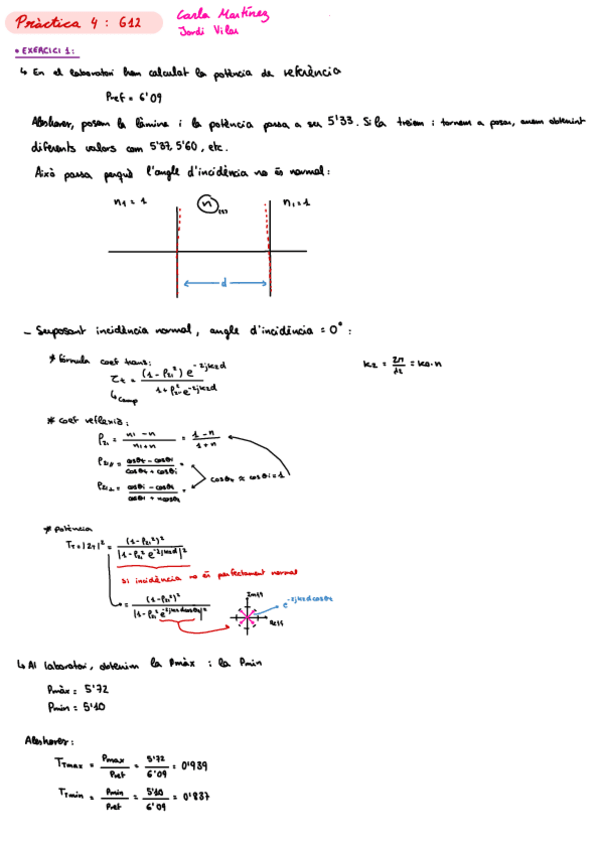 Pràctica 4: G12
Carla Martínez
Jordi Vilar
• EXERCICI 1:
↳ En el laboratori hem calculat la potència de referència
Pref = 6'09
Aleshores, posem la làmina i la potència passa a ser 5'33. Si la treiem i tornem a posar, anem obtenint
diferents valors com 5'87, 5'60, etc.
Això passa perquè l'angle d'incidència no és normal:
n1 = 1 n n1 = 1
d
- Suposant incidència normal, angle d'incidència = 0°:
* Fórmula coef trans:
τt = (1 - ρ21²) e^-jkzd / 1 + ρ21² e^-2jkzd
↳ comp
kz = 2π/λz = k0·n
* coef reflexió:
ρ21 = n1 - n / n1 + n = 1 - n / 1 + n
ρ21∥ = cosθt - cosθi / cosθt + cosθi
ρ21⊥ = cosθi - cosθt / cosθi + ncosθt
cosθt ≈ cosθi = 1
* Potència
TT = |τT|² = (1 - ρ21²)² / |1 - ρ21² e^-2jkzd|²
Si incidència no és perfectament normal
= (1 - ρ21²)² / |1 - ρ21² e^-2jkzdcosθz|²
Im{} Re{}
e^-2jkzdcosθz
↳ Al laboratori, obtenim la Pmàx i la Pmin
Pmàx = 5'72
Pmin = 5'10
Aleshores:
TTmax = Pmax / Pref = 5'72 / 6'09 = 0'939
TTmin = Pmin / Pref = 5'10 / 6'09 = 0'837